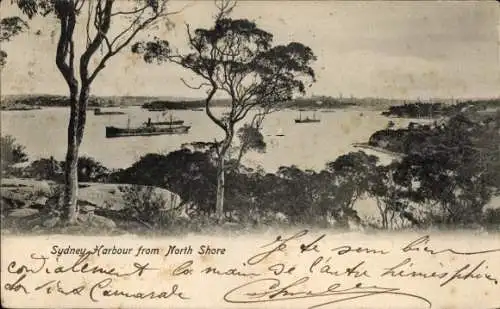 Sydney Harbour from North Shore
Je te serre bien
Cordialement la main de l'autre hémisphère
ton vieux Camarade